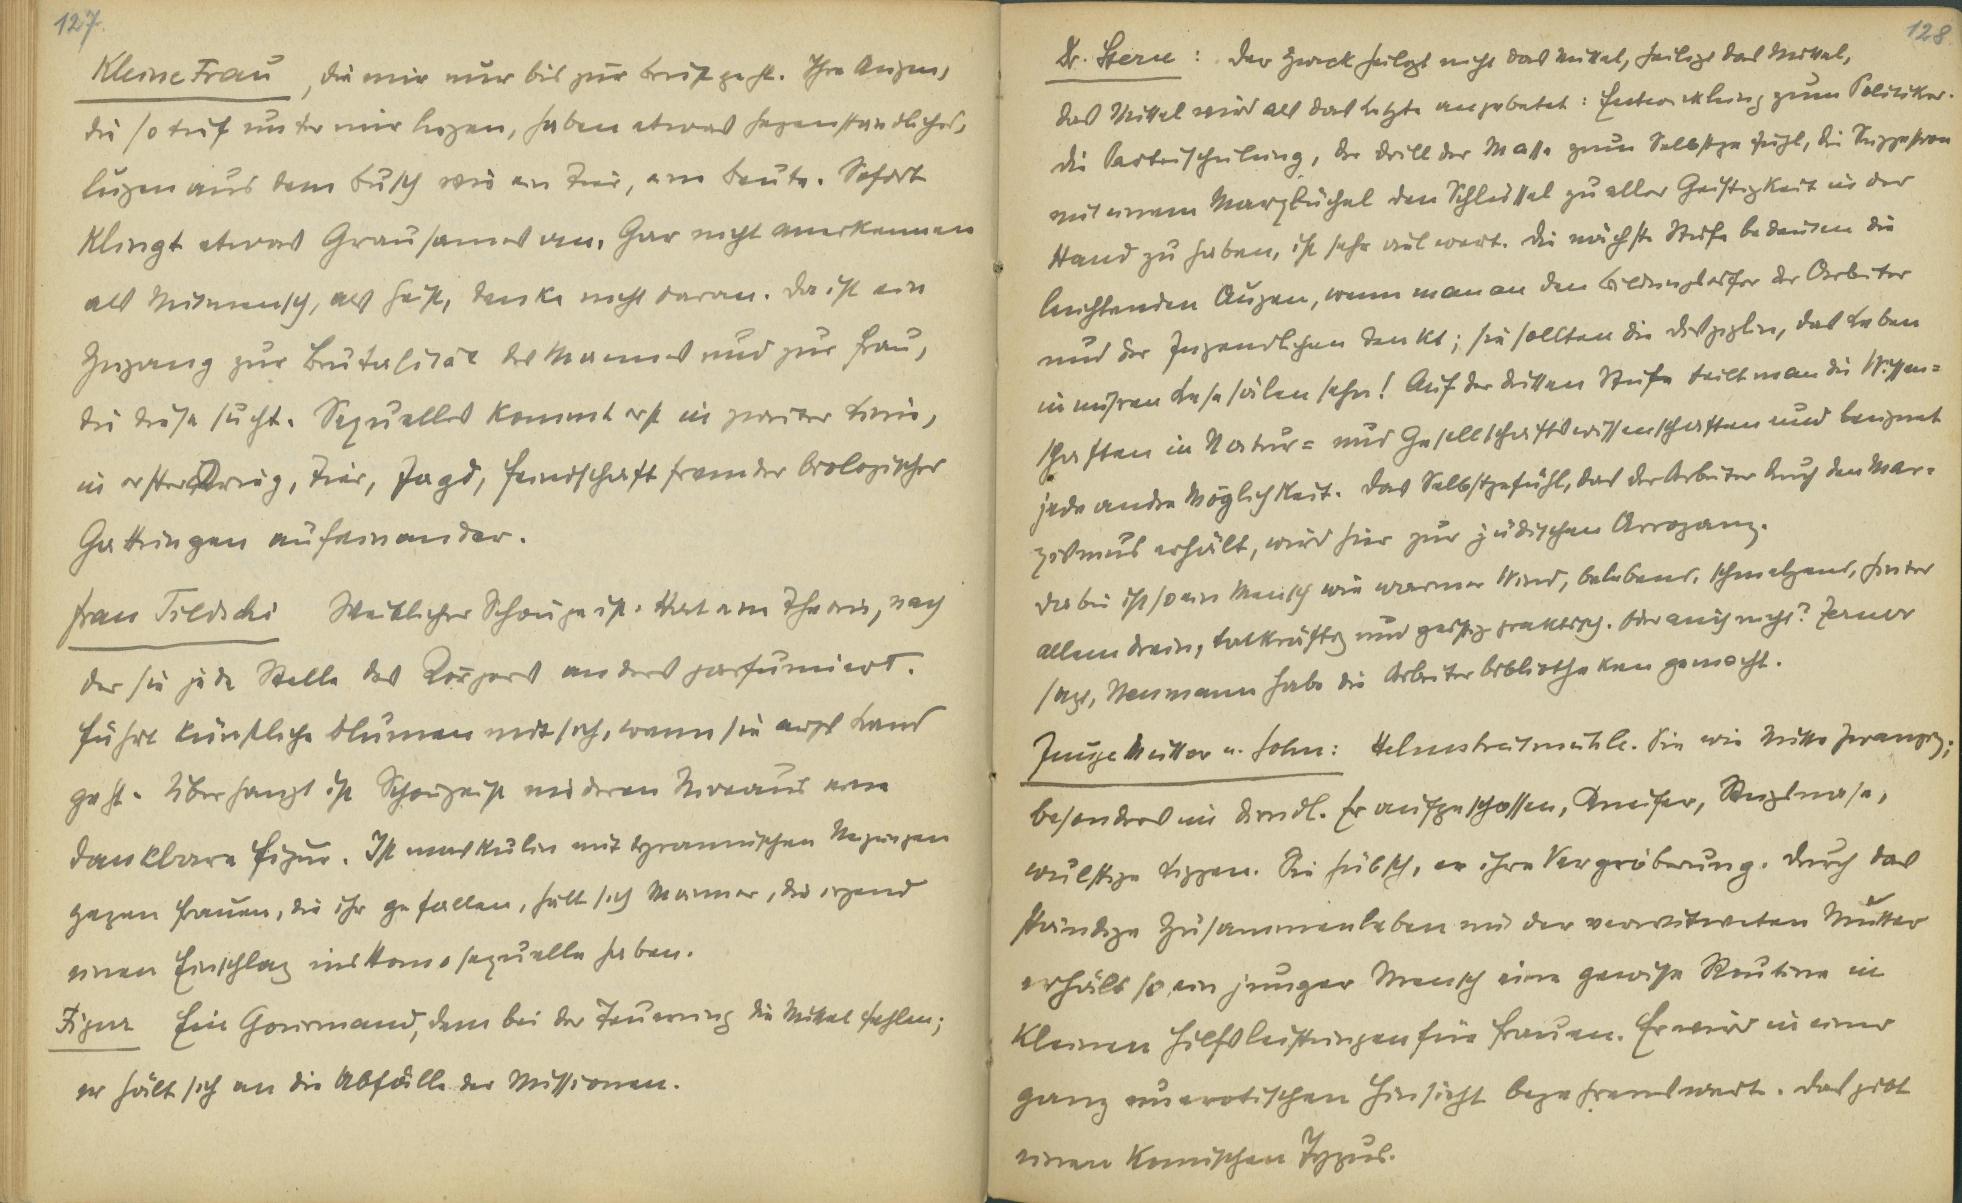 127
Kleine Frau, die mir nur bis zur Brust geht. Ihre Augen,
die so tief unter mir liegen, haben etwas Gegenständliches,
lugen aus dem Busch wie ein Tier, eine Beute. Sofort
klingt etwas Grausames an. Gar nicht anerkennen
als Mitmensch, als Geist, denke nicht daran. Da ist ein
Zugang zur Brutalität des Mannes und zur Frau,
die diese sucht. Sexuelles kommt erst in zweiter Linie,
in erster Krieg, Tier, Jagd, Feindschaft fremder biologischer
Gattungen aufeinander.
Frau Tildschi Weiblicher Schöngeist. Hat eine Theorie, nach
der sie jede Stelle des Körpers anders parfumiert.
Führt künstliche Blumen mit sich, wenn sie aufs Land
geht. Überhaupt ist Schöngeist niederen Niveaus eine
dankbare Figur. Ist maskulin mit tyrannischen Neigungen
gegen Frauen, die ihr gefallen, hält sich Männer, die irgend
einen Einschlag ins Homosexuelle haben.
Figur Ein Gourmand, dem bei der Teuerung die Mittel fehlen;
er hält sich an die Abfälle der Missionen.
128
Dr. Stern: Der Zweck heiligt nicht das Mittel, heilige das Mittel,
das Mittel wird als das Letzte angebetet: Entwicklung zum Politiker.
Die Parteischulung, der Drill der Masse zum Selbstgefühl, die Suggestion
mit einem Marxbüchel den Schlüssel zu aller Geistigkeit in der
Hand zu haben, ist sehr viel wert. Die nächste Stufe bedeuten die
leuchtenden Augen, wenn man an den Bildungseifer der Arbeiter
und der Jugendlichen denkt; sie sollten die Disziplin, das Leben
in unsren Lesesälen sehn! Auf der dritten Stufe teilt man die Wissen=
schaften in Natur= und Gesellschaftswissenschaften und leugnet
jede andre Möglichkeit. Das Selbstgefühl, das der Arbeiter durch den Mar=
xismus erhält, wird hier zur jüdischen Arroganz.
Dabei ist so ein Mensch wie warmer Wind, belebend, schmelzend, hinter
allem drein, tatkräftig und geistig praktisch. Oder auch nicht? Jener
sagt, Neumann habe die Arbeiterbibliotheken gemacht.
Junge Mutter u. Sohn: Helmstreitmühle. Sie wie Mitte zwanzig;
besonders im Dirndl. Er aufgeschossen, Kneifer, Stupsnase,
wulstige Lippen. Sie hübsch, er ihre Vergröberung. Durch das
ständige Zusammenleben mit der verwitweten Mutter
erhält so ein junger Mensch eine gewisse Routine in
kleinen Hilfsleistungen für Frauen. Er wird in einer
ganz unerotischen Hinsicht begehrenswert. Das gibt
einen komischen Typus.